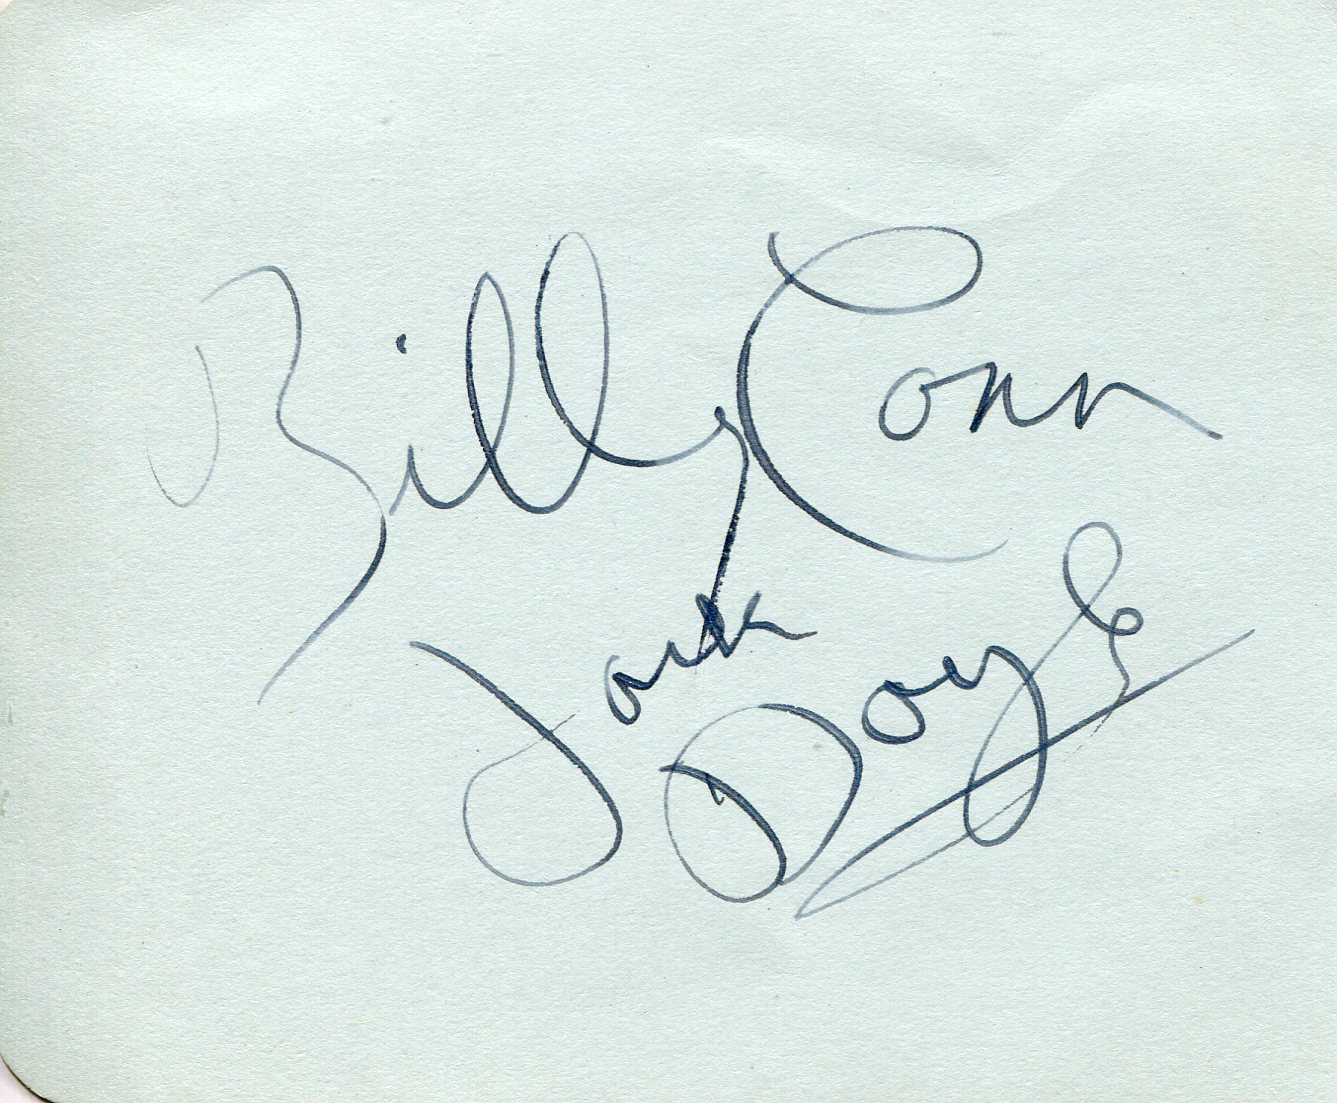 Billy Conn
Jack Doyle